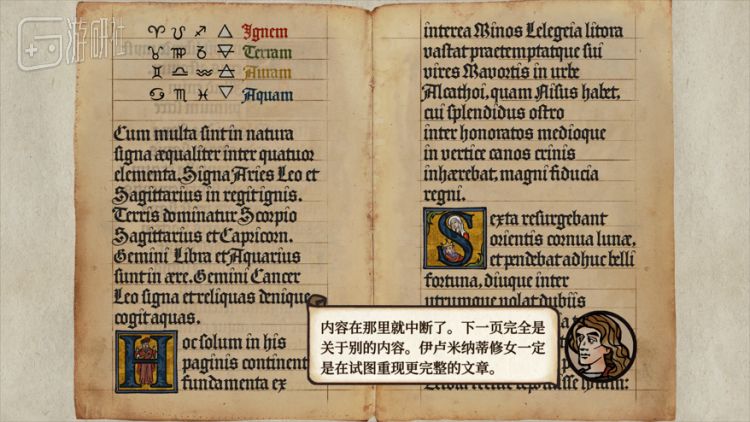 游研社
♈ ♌ ♐ 🜂 Ignem
♉ ♍ ♑ 🜃 Terram
♊ ♎ ♒ 🜁 Auram
♋ ♏ ♓ 🜄 Aquam
Cum multa sint in natura
signa æqualiter inter quatuor
elementa. Signa Aries Leo et
Sagittarius in regit ignis.
Terris dominatur Scorpio
Sagittarius et Capricorn.
Gemini Libra et Aquarius
sunt in ære. Gemini Cancer
Leo signa et reliquas denique
cogit aquas.
Hoc solum in his
paginis continent
fundamenta ex
interea Minos Lelegeia litora
vastat praetemptatque sui
vires Mavortis in urbe
Alcathoi, quam Nisus habet,
cui splendidus ostro
inter honoratos medioque
in vertice canos crinis
inhærebat, magni fiducia
regni.
Sexta resurgebant
orientis cornua lunæ,
et pendebat adhuc belli
fortuna, diuque inter
utrumque volat dubiis
内容在那里就中断了。下一页完全是
关于别的内容。伊卢米纳蒂修女一定
是在试图重现更完整的文章。